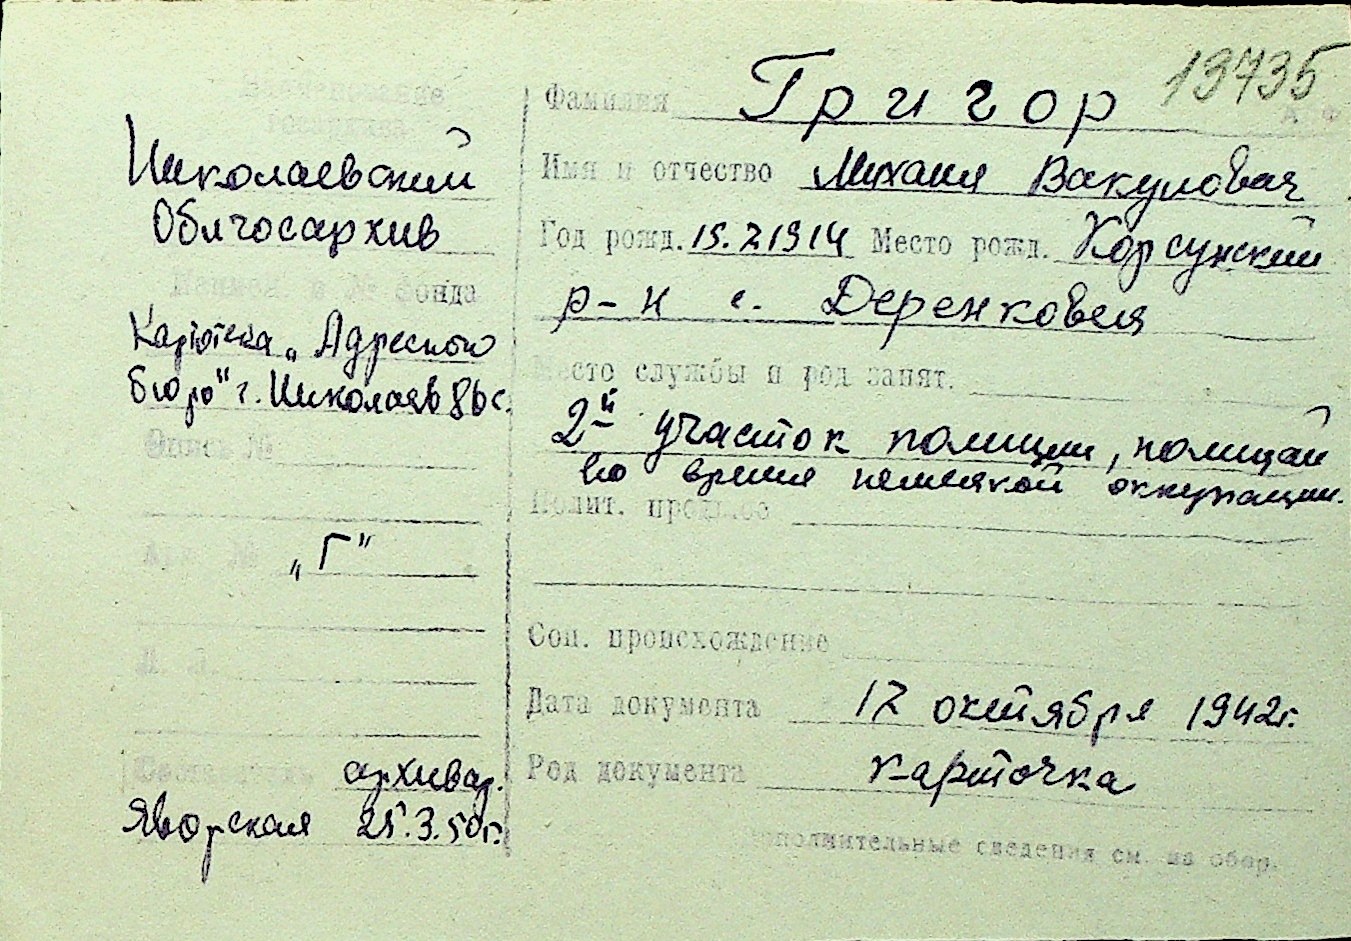 13735
Наименование
госархива
Николаевский
Облгосархив
Наимен. и № фонда
Картотека „Адресного
бюро" г. Николаев 8bс.
Опись №
Арх. № „Г"
Л. Л.
Составитель архивар.
Яворская 25.3.50г.
Фамилия Григор
Имя и отчество Михаил Вакулович
Год рожд. 15.2 1914 Место рожд. Корсунский
р-н с. Деренковец
Место службы и род занят.
2й участок полиции, полицай
во время немецкой оккупации.
Полит. прошлое
Соц. происхождение
Дата документа 12 октября 1942г.
Род документа карточка
Дополнительные сведения см. на обор.